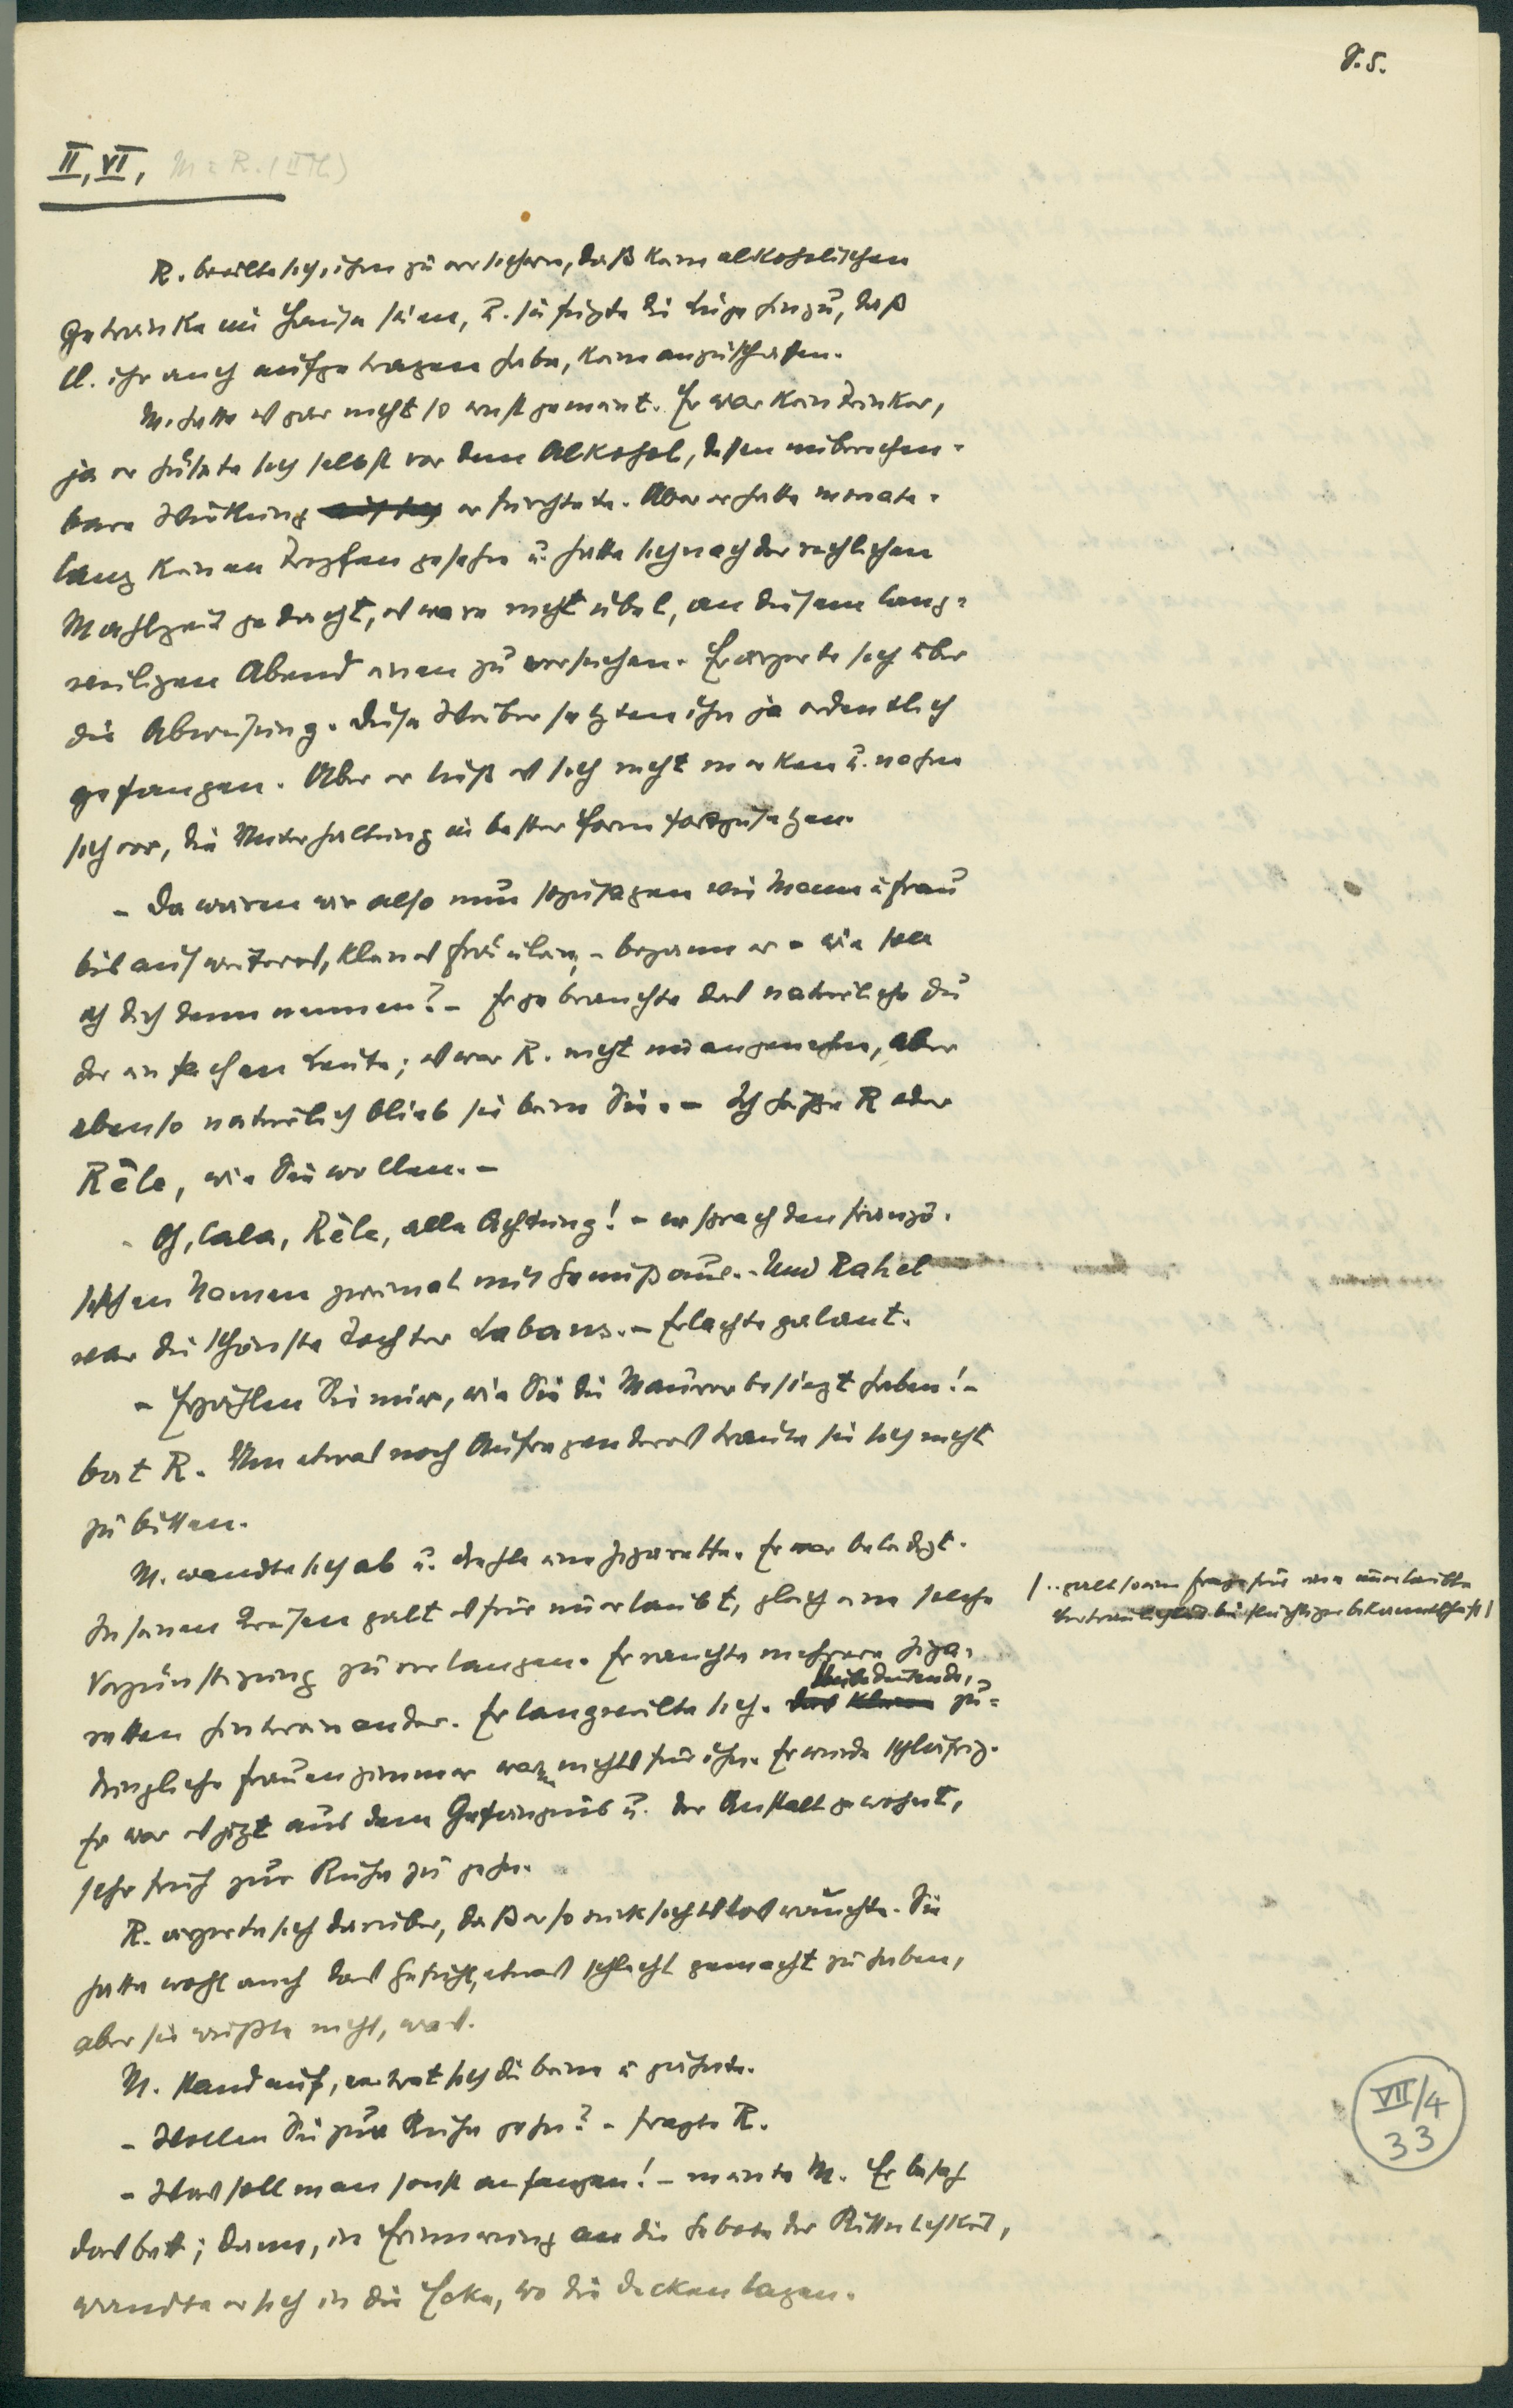 S. 5.
II, VI, M = R. (II Th)
R. beeilte sich, ihm zu versichern, daß keine alkoholischen
Getränke im Hause seien, u. sie fügte die Lüge hinzu, daß
U. ihr auch aufgetragen habe, keine anzuschaffen.
M. hatte es gar nicht so ernst gemeint. Er war kein Trinker,
ja er hütete sich selbst vor dem Alkohol, dessen unberechen-
bare Wirkung auf sich er fürchtete. Aber er hatte monate-
lang keinen Tropfen gesehn u. hatte sich nach der reichlichen
Mahlzeit gedacht, es wäre nicht übel, an diesem lang-
weiligen Abend einen zu versuchen. Er ärgerte sich über
die Abweisung. Diese Weiber setzten ihn ja ordentlich
gefangen. Aber er ließ es sich nicht merken u. nahm
sich vor, die Unterhaltung in bester Form fortzusetzen.
– Da wären wir also nun sozusagen wie Mann u Frau
bis auf weiteres, kleines Fräulein, – begann er – wie soll
ich dich denn nennen? – Er gebrauchte das natürliche Du
der einfachen Leute; es war R. nicht unangenehm, aber
ebenso natürlich blieb sie beim Sie. – Ich heiße R oder
Rèle, wie Sie wollen. –
– Oh, lala, Rèle, alle Achtung! – er sprach den franzö-
sischen Namen zweimal mit Genuß aus. – Und Rahel
war die schönste Tochter Labans. – Er lachte galant.
– Erzählen Sie mir, wie Sie die Maurer besiegt haben! –
bat R. Um etwas noch Aufregenderes traute sie sich nicht
zu bitten.
M. wandte sich ab u. drehte eine Zigarette. Er war beleidigt.
In seinen Kreisen galt es für unerlaubt, gleich eine solche
/ .. galt so eine Frage für eine unerlaubte
Vertraulichkeit bei flüchtiger Bekanntschaft /
Vergünstigung zu verlangen. Er rauchte mehrere Ziga-
retten hintereinander. Er langweilte sich. das kleine zu-
dringliche Frauenzimmer war nichts für ihn. Er wurde schläfrig.
Er war es jetzt aus dem Gefängnis u. der Anstalt gewohnt,
sehr früh zur Ruhe zu gehn.
R. ärgerte sich darüber, daß er so rücksichtslos rauchte. Sie
hatte wohl auch das Gefühl, etwas schlecht gemacht zu haben,
aber sie wußte nicht, was.
M. stand auf, vertrat sich die Beine u gähnte.
– Wollen Sie zur Ruhe gehn? – fragte R.
– Was soll man sonst anfangen! – meinte M. Er besah
das Bett; dann, in Erinnerung an die Gebote der Ritterlichkeit,
wandte er sich in die Ecke, wo die Decken lagen.
VII/4
33